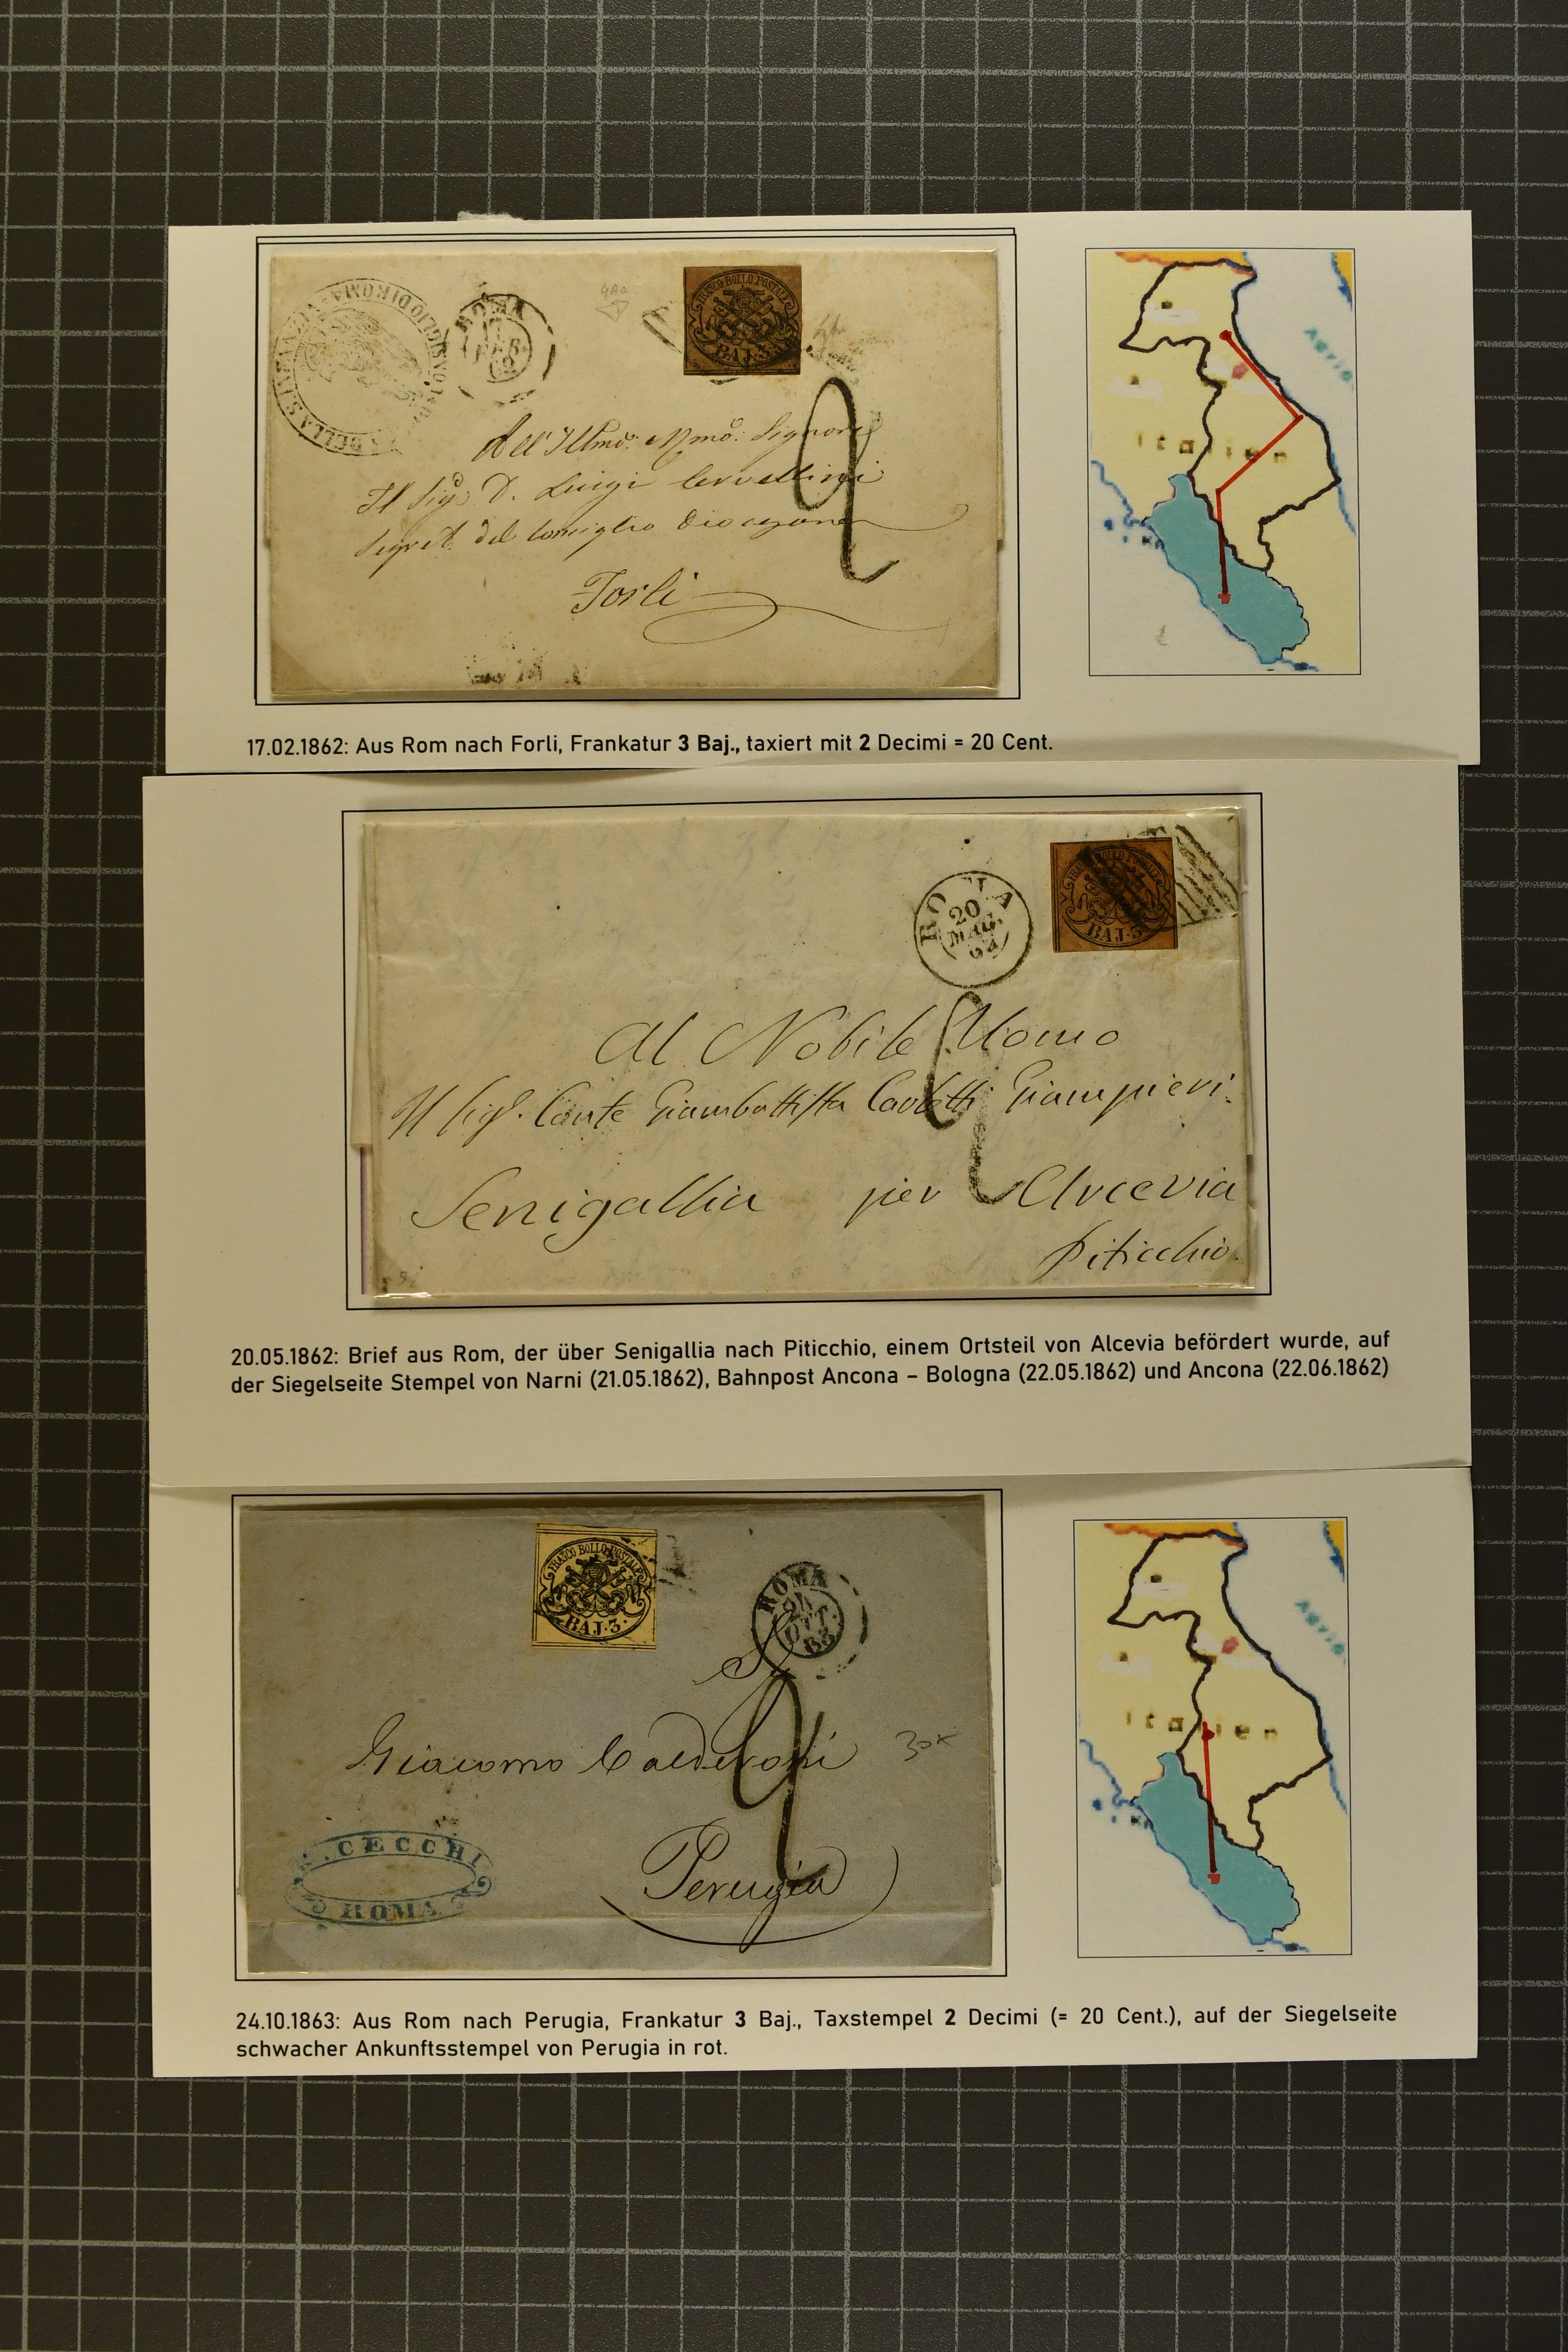 ROMA
17
FEB.
62
FRANCO BOLLO POSTALE
BAJ. 3
2
All'Illmo: Rmo: Signore
Il Sigr D. Luigi Cervellini
Segret. del Consiglio Diocezano
Forlì
Adria
Italien
17.02.1862: Aus Rom nach Forli, Frankatur 3 Baj., taxiert mit 2 Decimi = 20 Cent.
ROMA
20
MAG.
62
BAJ. 3
2
Al Nobile Uomo
Il Sigr. Conte Giambattista Carletti Giampieri.
Senigallia per Arcevia
Piticchio.
20.05.1862: Brief aus Rom, der über Senigallia nach Piticchio, einem Ortsteil von Alcevia befördert wurde, auf
der Siegelseite Stempel von Narni (21.05.1862), Bahnpost Ancona – Bologna (22.05.1862) und Ancona (22.06.1862)
FRANCO BOLLO POSTALE
BAJ. 3.
ROMA
24
OTT.
63
2
Giacomo Calderoni
30x
Perugia
CECCHI
ROMA
Adria
Italien
24.10.1863: Aus Rom nach Perugia, Frankatur 3 Baj., Taxstempel 2 Decimi (= 20 Cent.), auf der Siegelseite
schwacher Ankunftsstempel von Perugia in rot.